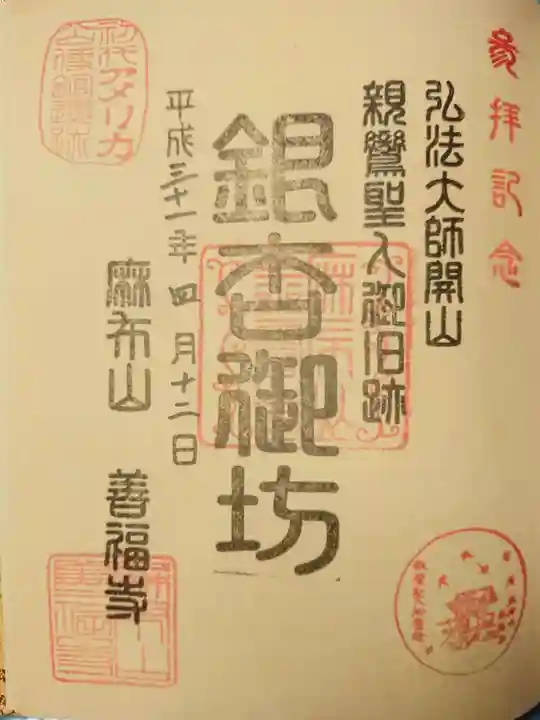 参拝記念
弘法大師開山
親鸞聖人御旧跡
銀杏御坊
平成三十一年四月十二日
麻布山 善福寺
初代アメリカ
公使館跡